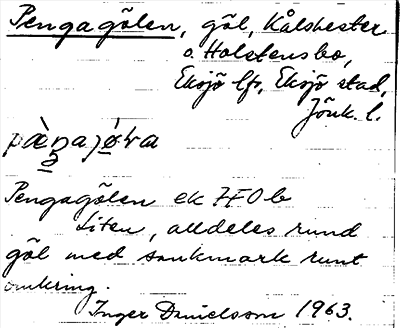 Pengagölen, göl, Kålshester
o. Holstensbo,
Eksjö lfs, Eksjö stad,
Jönk. l.
Pengagölen ek 7F0b
Liten, alldeles rund
göl med sankmark runt
omkring.
Inger Danielsson 1963.